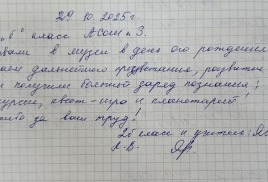 29.10.2025г.
"б" класс АСОШ №3.
в музеи в день его рождения
дальнейшего процветания, развития
получили большой заряд познания;
квест-игра и планетарий!
за ваш труд!
2б класс и учитель:
А.В.